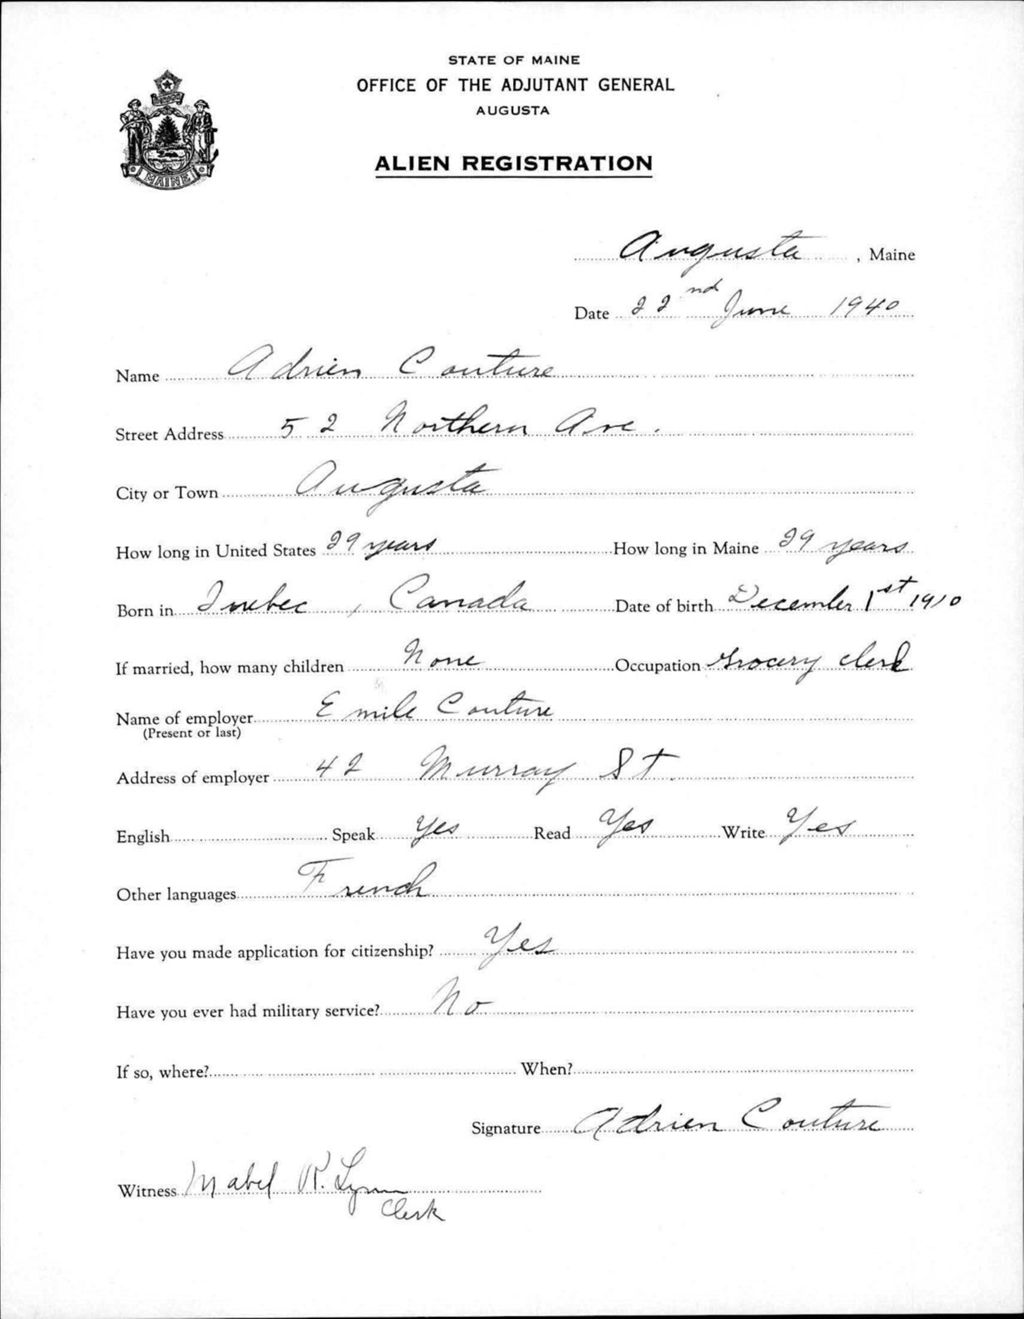 STATE OF MAINE
OFFICE OF THE ADJUTANT GENERAL
AUGUSTA
ALIEN REGISTRATION
MAINE
Augusta, Maine
Date 22nd June 1940
Name Adrien Couture
Street Address 52 Northern Ave.
City or Town Augusta
How long in United States 29 years How long in Maine 29 years
Born in Quebec, Canada Date of birth December 1st 1910
If married, how many children None Occupation Grocery clerk
Name of employer Emile Couture
(Present or last)
Address of employer 42 Murray St.
English Speak Yes Read Yes Write Yes
Other languages French
Have you made application for citizenship? Yes
Have you ever had military service? No
If so, where? When?
Signature Adrien Couture
Witness Mabel R. Lynn
Clerk